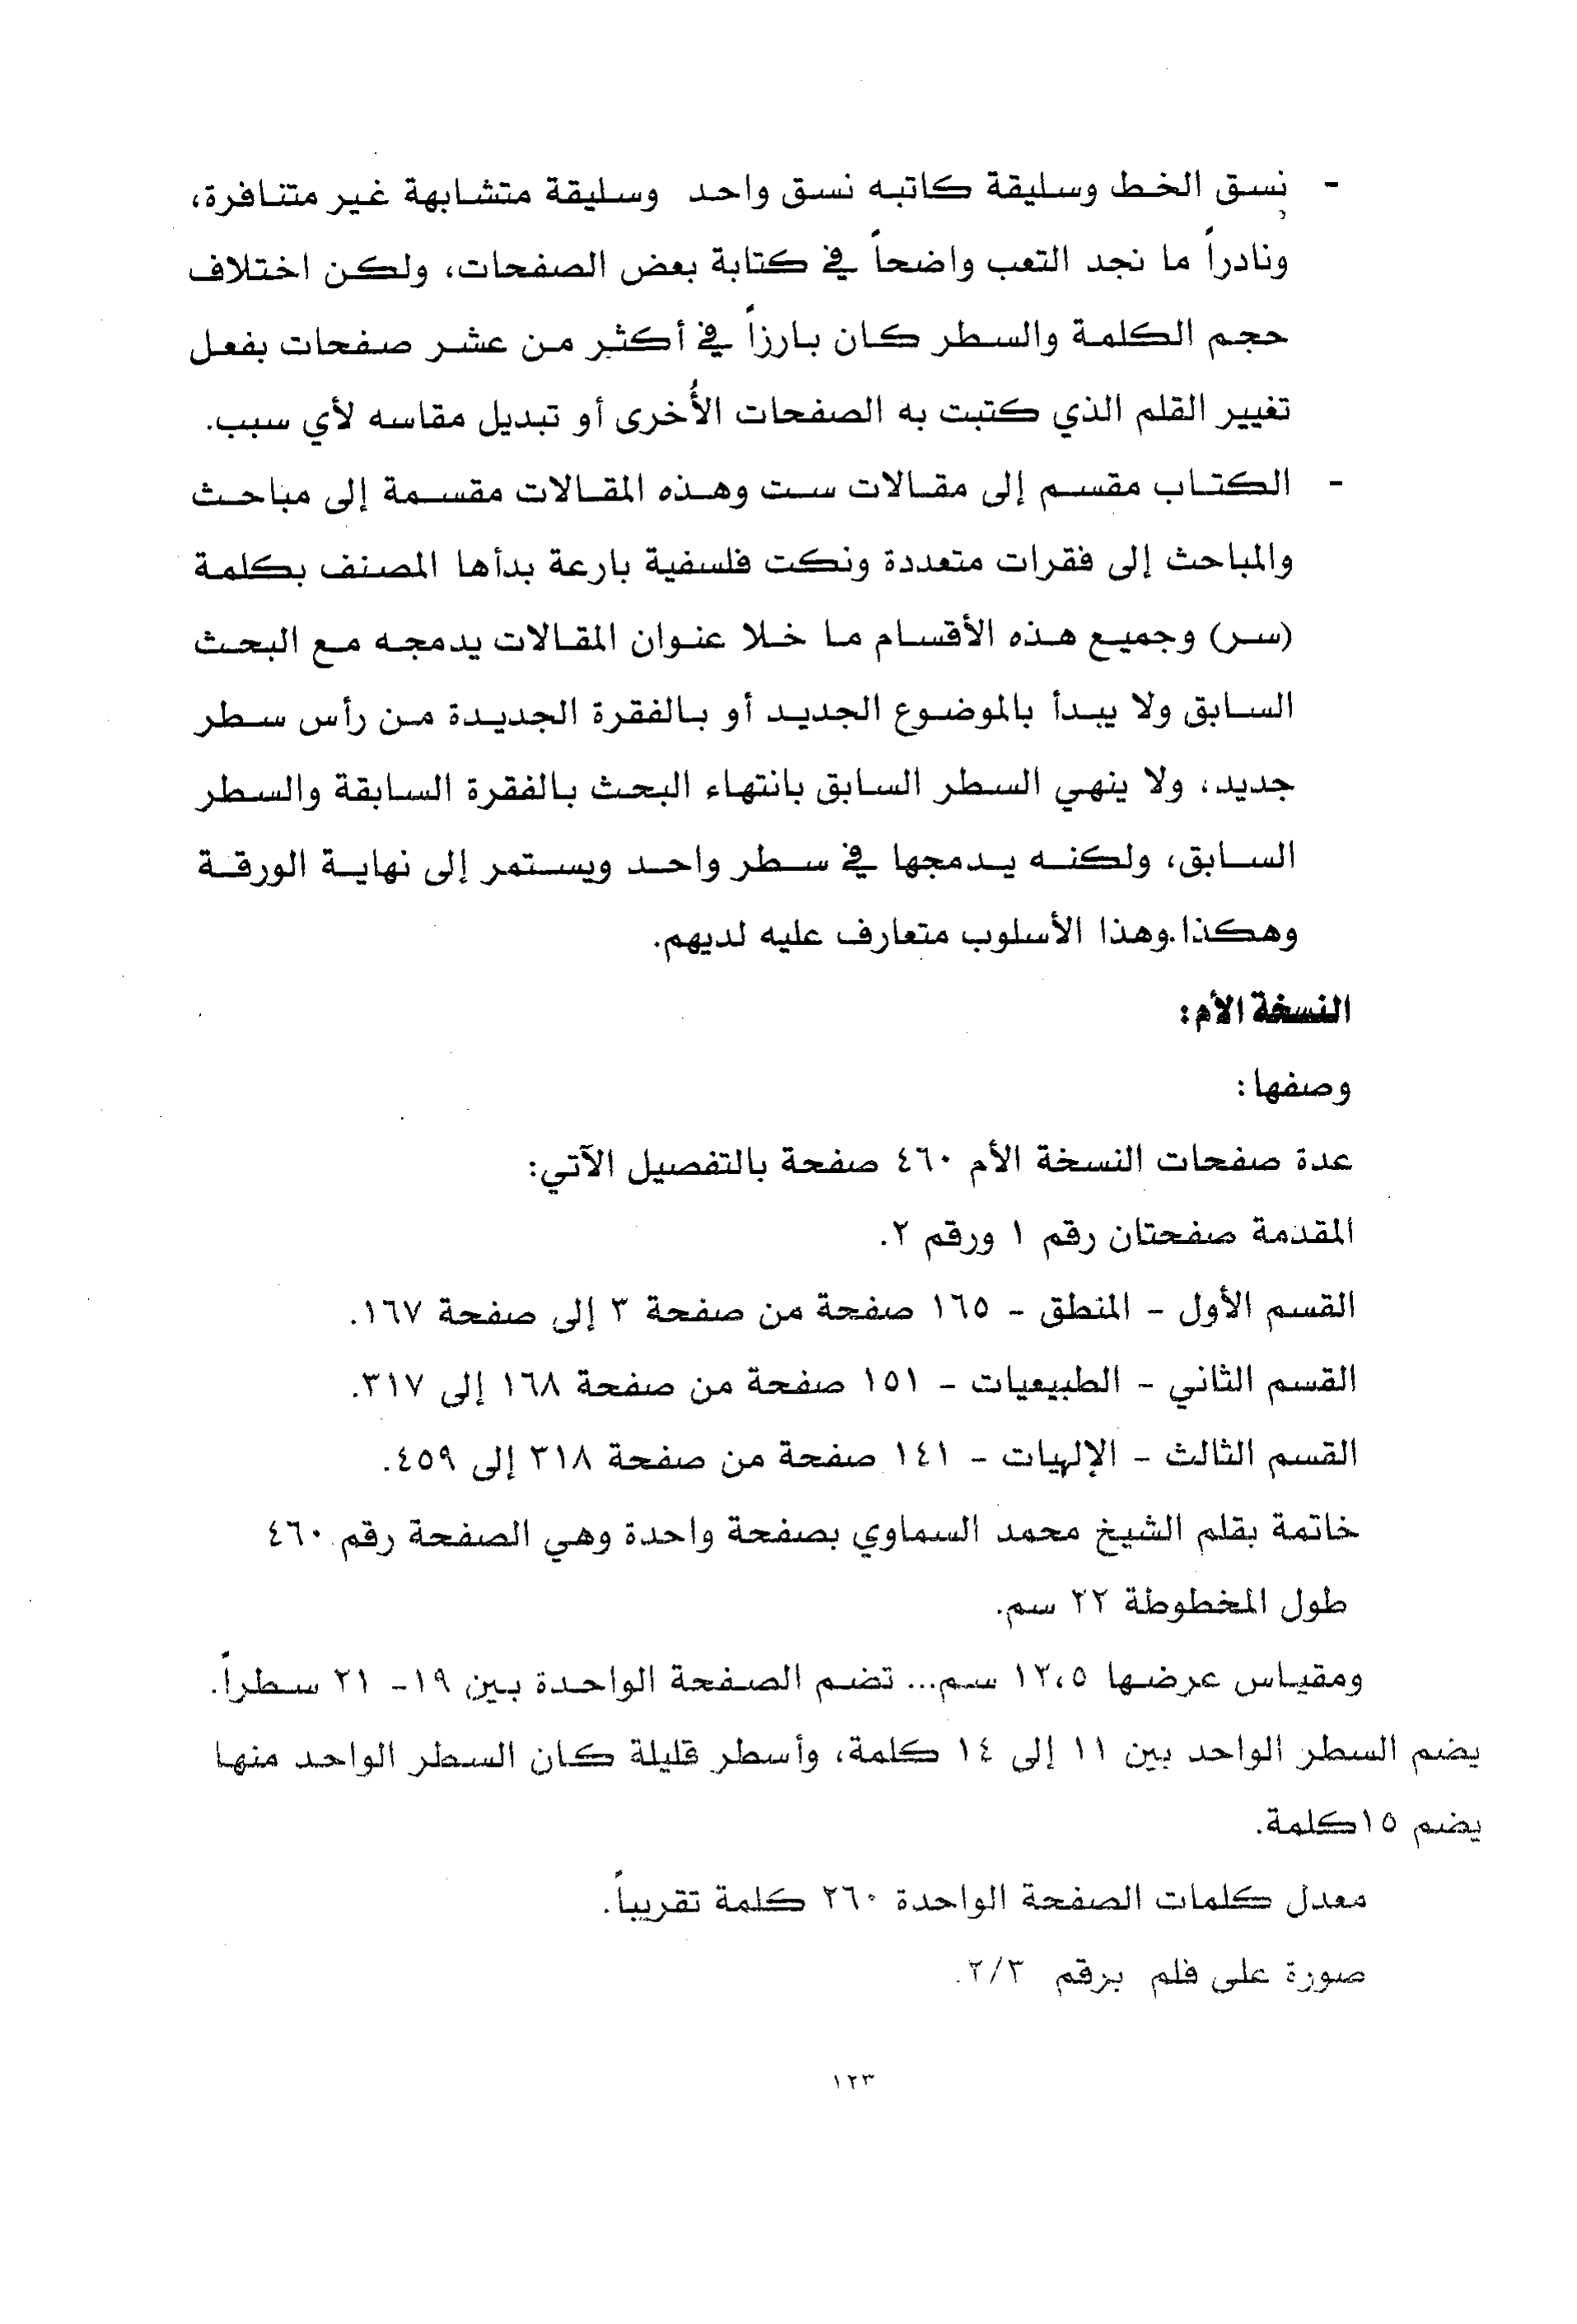 - نسق الخط وسليقة كاتبه نسق واحد وسليقة متشابهة غير متنافرة،
ونادراً ما نجد التعب واضحاً في كتابة بعض الصفحات، ولكن اختلاف
حجم الكلمة والسطر كان بارزاً في أكثر من عشر صفحات بفعل
تغيير القلم الذي كتبت به الصفحات الأُخرى أو تبديل مقاسه لأي سبب.
- الكتاب مقسم إلى مقالات ست وهذه المقالات مقسمة إلى مباحث
والمباحث إلى فقرات متعددة ونكت فلسفية بارعة بدأها المصنف بكلمة
(سر) وجميع هذه الأقسام ما خلا عنوان المقالات يدمجه مع البحث
السابق ولا يبدأ بالموضوع الجديد أو بالفقرة الجديدة من رأس سطر
جديد، ولا ينهي السطر السابق بانتهاء البحث بالفقرة السابقة والسطر
السابق، ولكنه يدمجها في سطر واحد ويستمر إلى نهاية الورقة
وهكذا.وهذا الأسلوب متعارف عليه لديهم.
النسخة الأم:
وصفها:
عدة صفحات النسخة الأم ٤٦٠ صفحة بالتفصيل الآتي:
المقدمة صفحتان رقم ١ ورقم ٢.
القسم الأول - المنطق - ١٦٥ صفحة من صفحة ٣ إلى صفحة ١٦٧.
القسم الثاني - الطبيعيات - ١٥١ صفحة من صفحة ١٦٨ إلى ٣١٧.
القسم الثالث - الإلهيات - ١٤١ صفحة من صفحة ٣١٨ إلى ٤٥٩.
خاتمة بقلم الشيخ محمد السماوي بصفحة واحدة وهي الصفحة رقم ٤٦٠
طول المخطوطة ٢٢ سم.
ومقياس عرضها ١٢،٥ سم... تضم الصفحة الواحدة بين ١٩- ٢١ سطراً.
يضم السطر الواحد بين ١١ إلى ١٤ كلمة، وأسطر قليلة كان السطر الواحد منها
يضم ١٥كلمة.
معدل كلمات الصفحة الواحدة ٢٦٠ كلمة تقريباً.
صورة على فلم برقم ٢/٣.
١٢٣